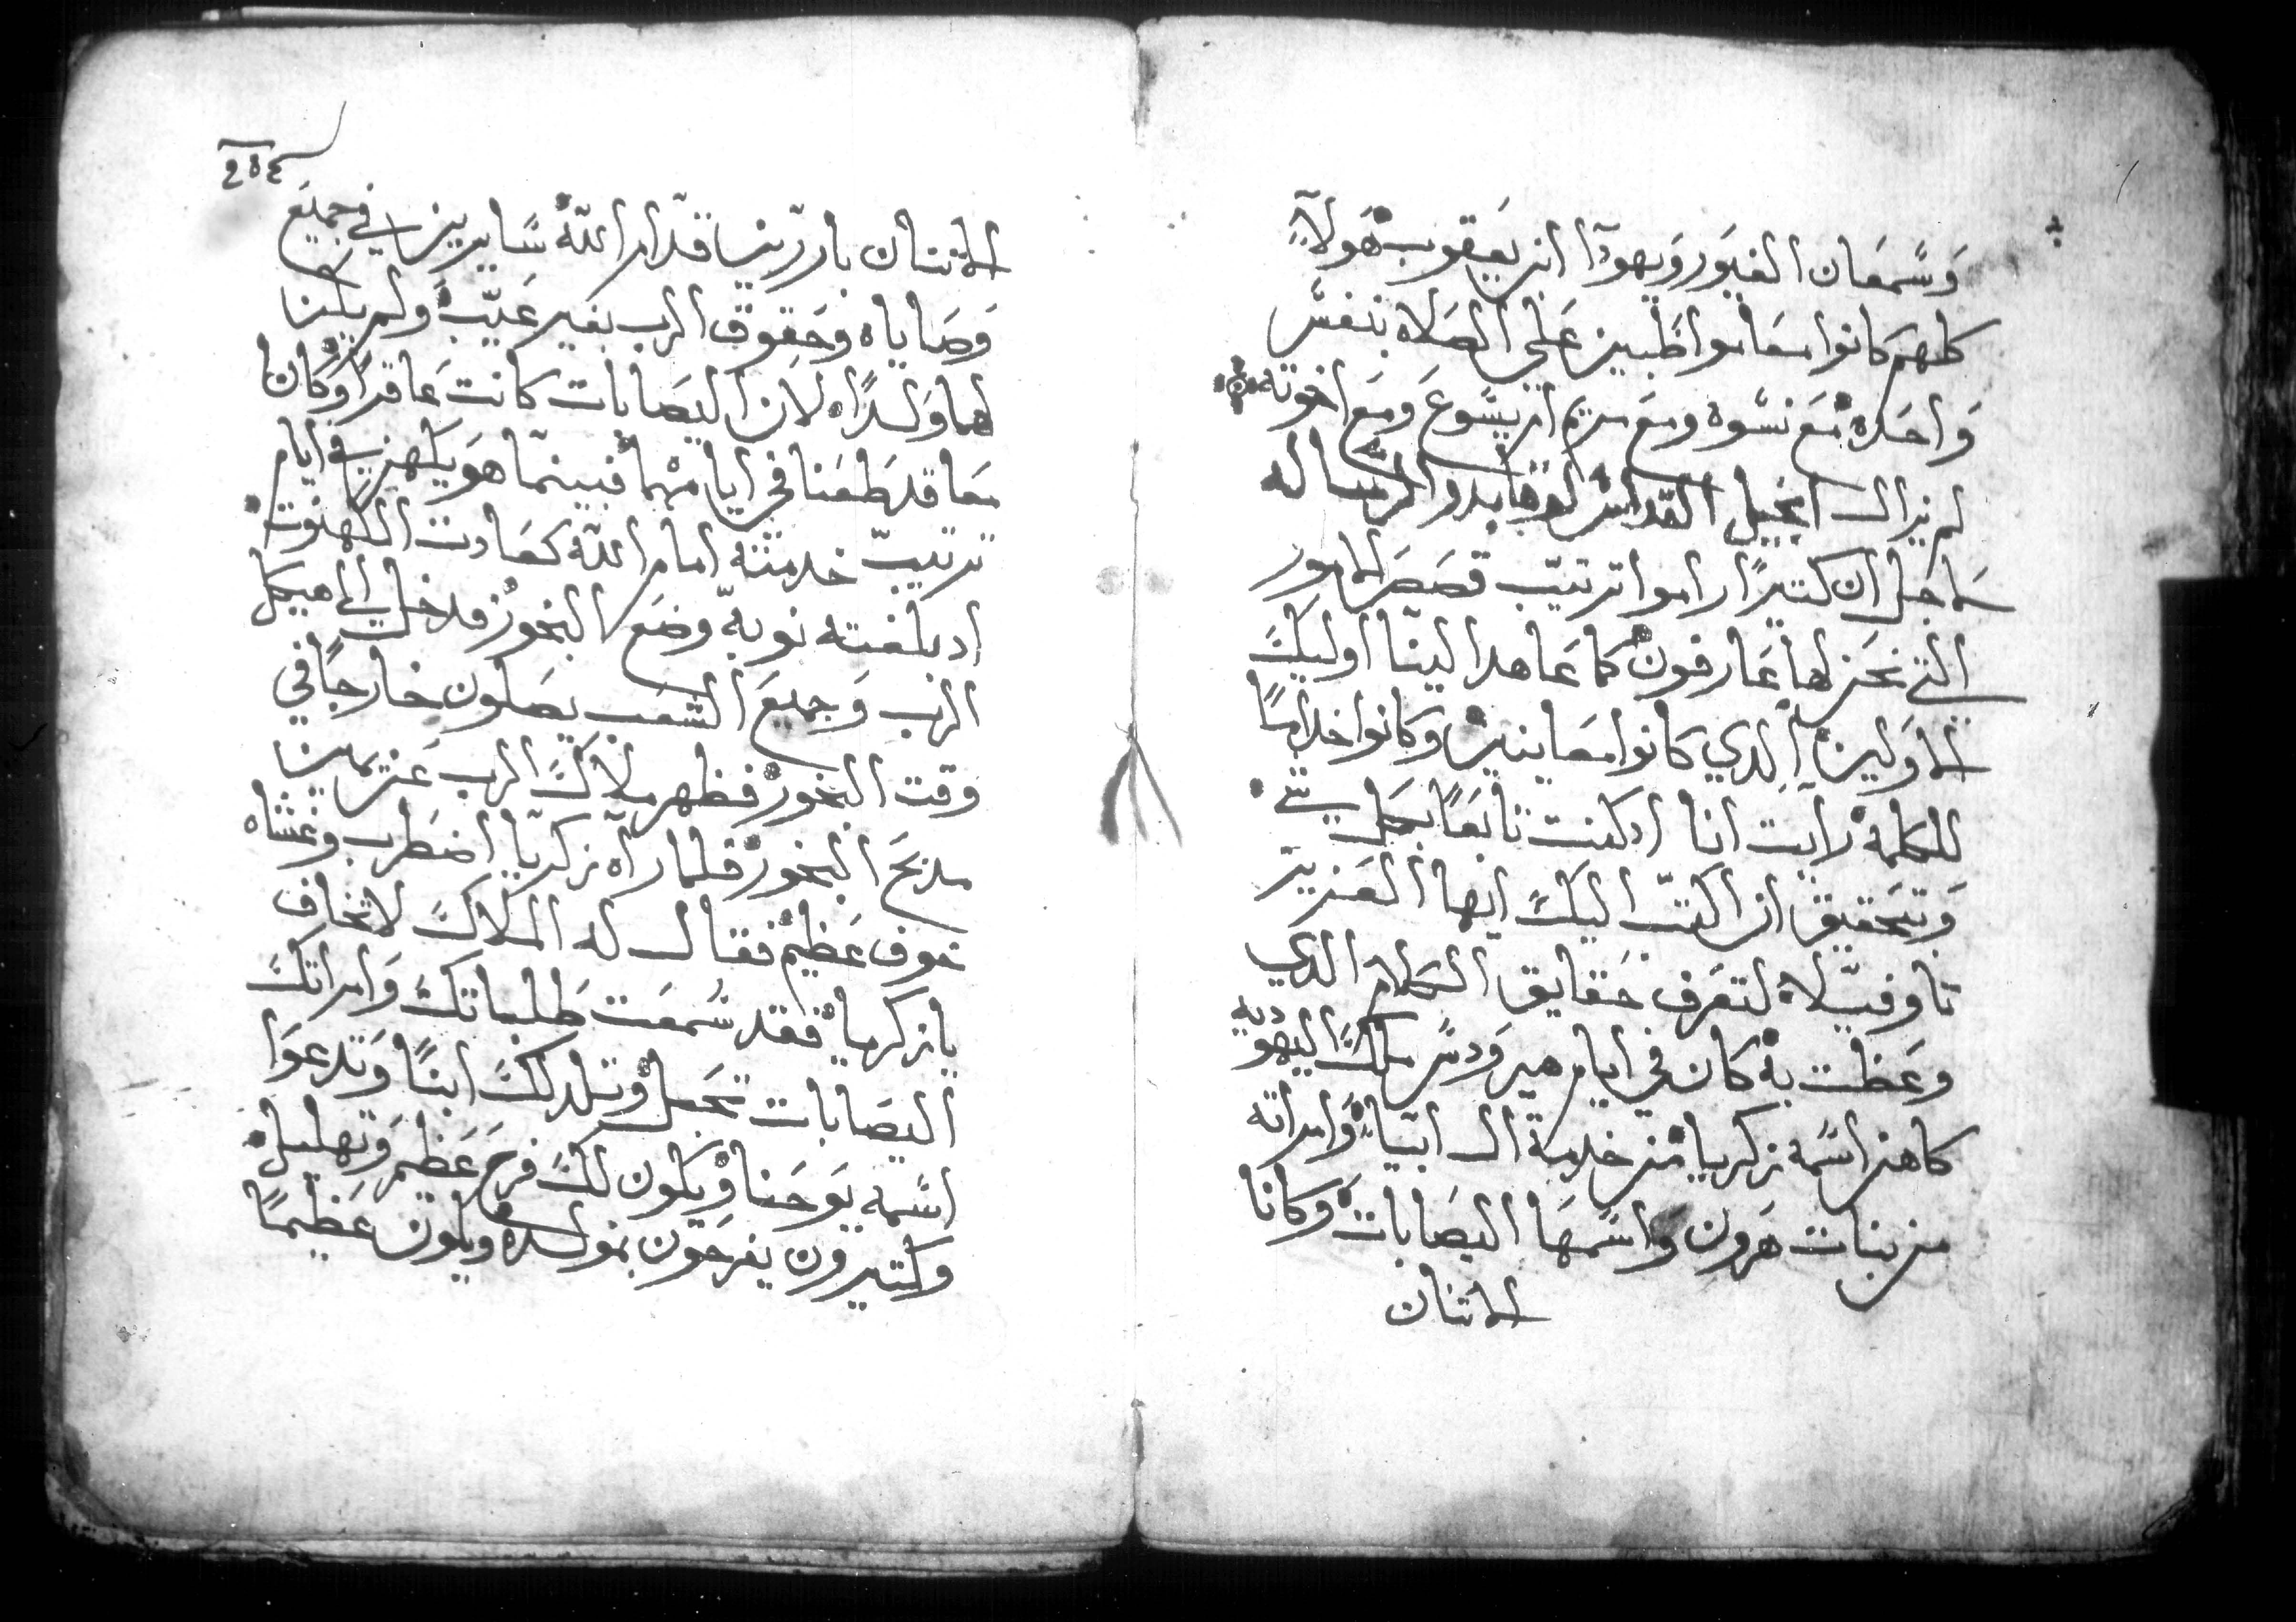 وسمعان الغيور ويهودا ابن يعقوب هولاء
كلهم كانوا معا مواظبين على الصلاه بنفس
واحده مع نسوه ومع مريم ام يسوع ومع اخوته
لم يزال انجيل القداس لوقا بدو الرساله
ماجل ان كتيرًا راموا ترتيب قصص الامور
التي نحن لها عارفون كما عاهدا الينا اوليك
الاولين الدي كانوا معاينين وكانوا خدامًا
للكلمة رايت انا اد كنت تابعًا بكل شي
وتحقيق ان اكتب اليك ايها العزيز
تاوفيلا لتعرف حقايق الكلام الدي
وعظت به كان في ايام هيرودس ملك اليهوديه
كاهن اسمه زكريا من خدمة ال ابيا وامراته
من بنات هرون واسمها اليصابات وكانا
الاتنان
الاتنان باررين قدام الله سايرين في جميع
وصاياه وحقوق الرب بغير عيب ولم يكن
لهما ولدًا لان اليصابات كانت عاقرًا وكان
معا قد طعنا في ايامهما فبينما هو يكهن في ايام
ترتيب خدمته امام الله كعادت الكهنوت
اد بلغته نوبة وضع البخور فدخل الى هيكل
الرب وجميع الشعب يصلون خارجًا في
وقت البخور فظهر ملاك الرب عن يمين
مدبح البخور فلما راه زكريا اضطرب وغشاه
خوف عظيم فقال له الملاك لا تخاف
يا زكريا فقد سمعت طلباتك وامراتك
اليصابات تحبل وتلد لك ابنًا وتدعوا
اسمه يوحنا ويكون لك فرح عظيم وتهليل
وكتيرون يفرحون بمولده ويكون عظيمًا